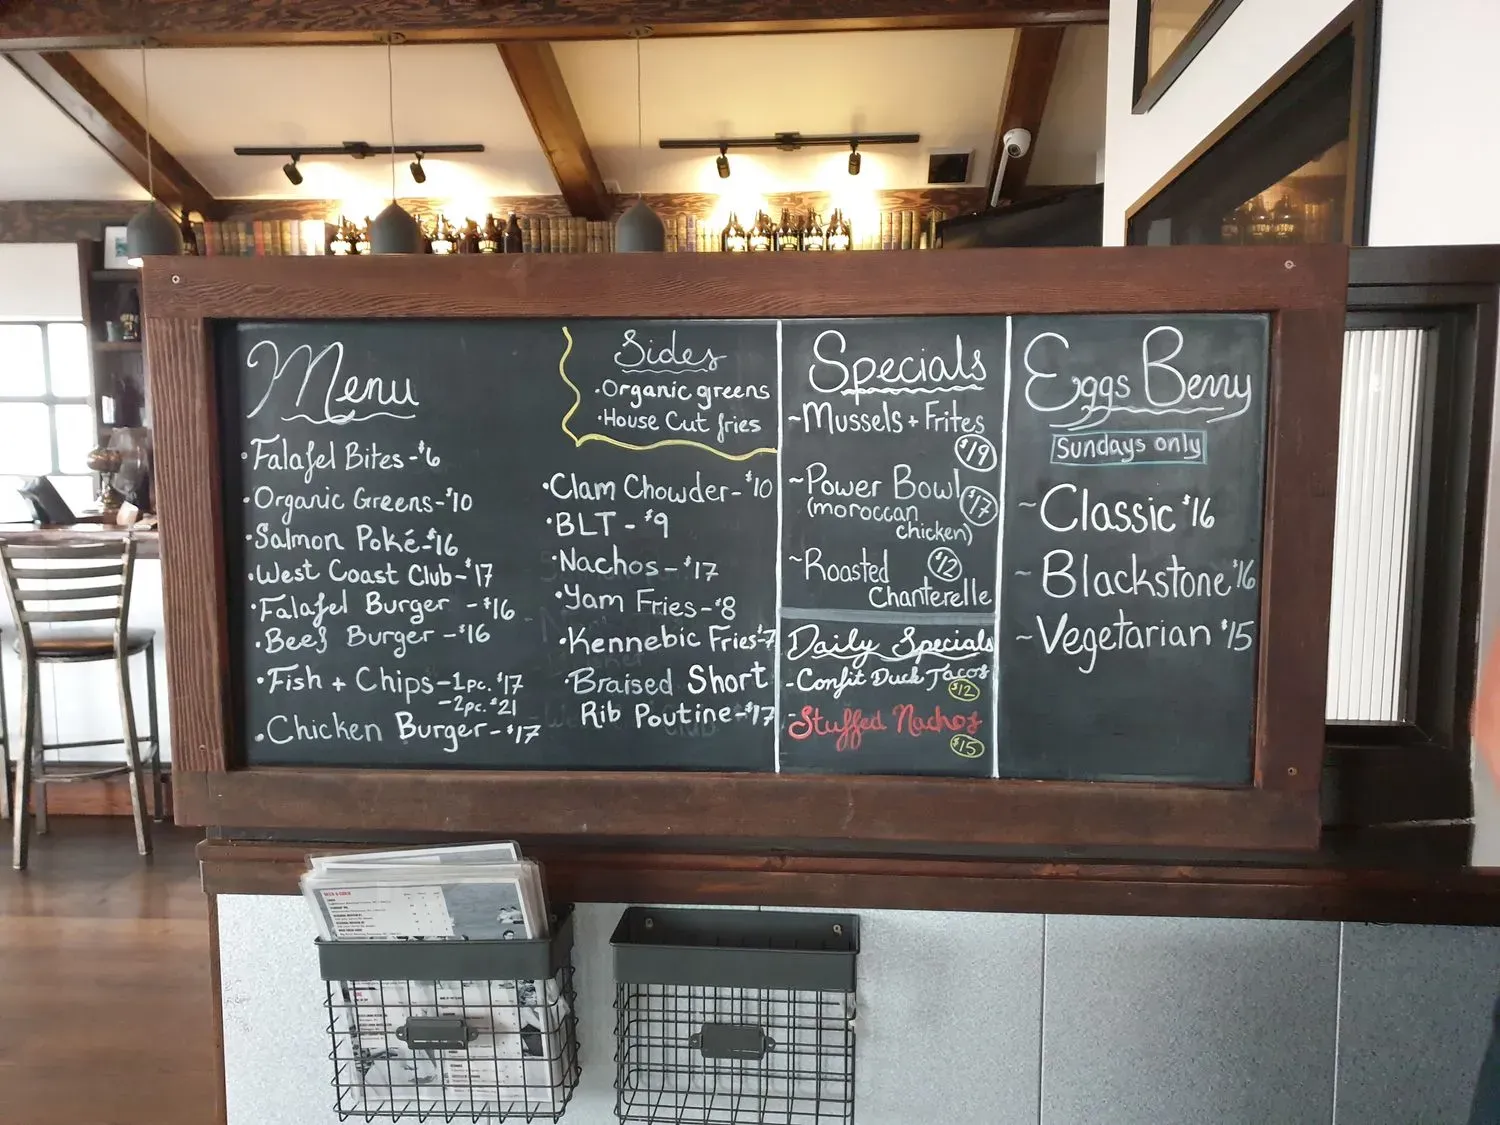 Menu
·Falafel Bites-$6
·Organic Greens-$10
·Salmon Poké-$16
·West Coast Club-$17
·Falafel Burger -$16
·Beef Burger -$16
·Fish + Chips-1pc. $17
-2pc. $21
·Chicken Burger-$17
Sides
·Organic greens
·House Cut fries
·Clam Chowder-$10
·BLT-$9
·Nachos-$17
·Yam Fries-$8
·Kennebic Fries-$7
·Braised Short
Rib Poutine-$17
Specials
~Mussels + Frites
$19
~Power Bowl
$17
(moroccan
chicken)
~Roasted $12
Chanterelle
Daily Specials
-Confit Duck Tacos
$12
-Stuffed Nachos
$15
Eggs Benny
Sundays only
~Classic $16
~Blackstone $16
~Vegetarian $15